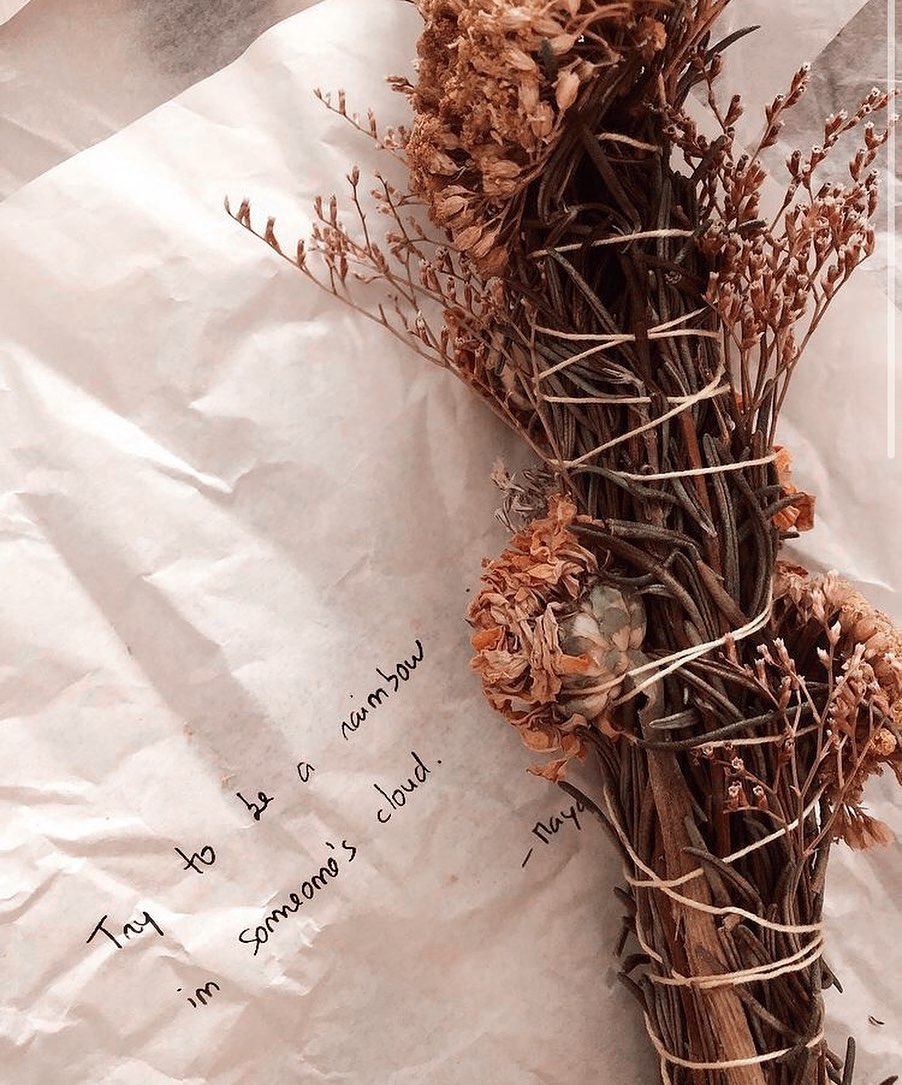 Try to be a rainbow
in someone's cloud.
- Maya